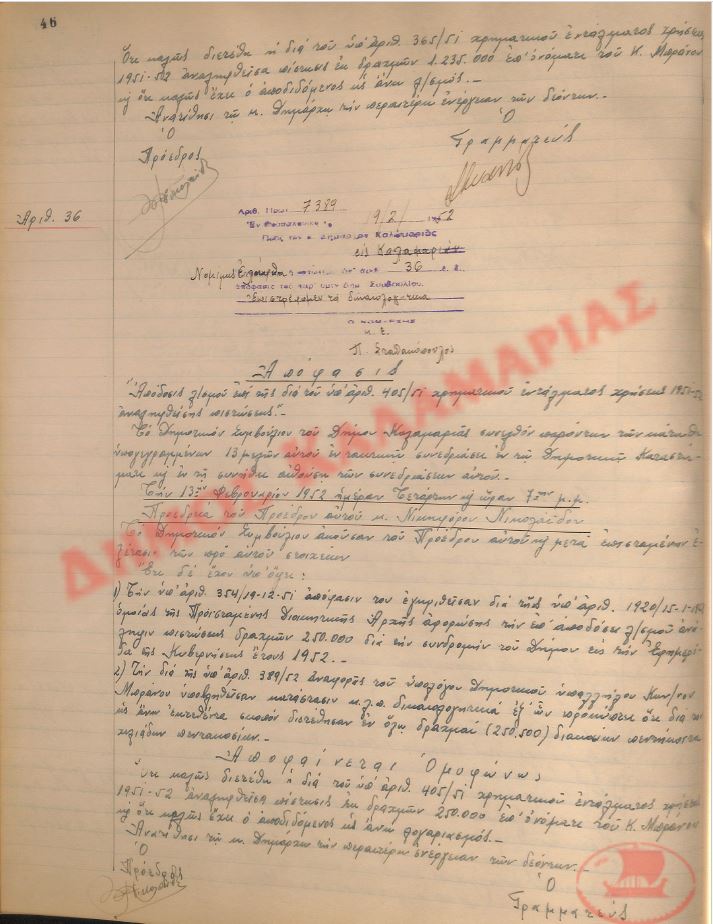 46
Ὅτι καλῶς διετέθη ἡ διά τοῦ ὑπ' ἀριθ. 365/51 χρηματικοῦ ἐντάλματος χρήσεως
1951-52 ἀναληφθεῖσα πίστωσις ἐκ δραχμῶν 1.235.000 ἐπ' ὀνόματι τοῦ Κ. Μαράνου
κ ὅτι καλῶς ἔχει ὁ ἀποδιδόμενος ὡς ἄνω λ/σμός.-
Ἀνατίθησι τῷ κ. Δημάρχῳ τήν περαιτέρω ἐνέργειαν τῶν δεόντων.-
Ὁ
Πρόεδρος
Ὁ
Γραμματεύς
Ἀριθ. 36
Ἀριθ. Πρωτ. 7389 19/2/1952
Ἐν Θεσσαλονίκῃ
Πρός τόν κ. Δήμαρχον Καλαμαριᾶς
εἰς Καλαμαριάν
Νομίμως ἐλήφθη ἡ ὑπ' ἀριθ. 36 ἐ. ἔ.
ἀπόφασις τοῦ παρ' ὑμῖν Δημ. Συμβουλίου.
Ἐπιστρέφομεν τά δικαιολογητικά
Ὁ ΝΟΜΑΡΧΗΣ
κ. ἐ.
Π. Σταθακόπουλος
Ἀπόφασις
"Ἀπόδοσις λ/σμοῦ ἐπί τῆς διά τοῦ ὑπ' ἀριθ. 405/51 χρηματικοῦ ἐντάλματος χρήσεως 1951-52
ἀναληφθείσης πιστώσεως".-
Τό Δημοτικόν Συμβούλιον τοῦ Δήμου Καλαμαριᾶς συνελθόν παρόντων τῶν κάτωθι
ὑπογεγραμμένων 13 μελῶν αὐτοῦ ἐν τακτικῇ συνεδριάσει ἐν τῷ Δημοτικῷ Καταστή-
ματι κ ἐν τῇ συνήθει αἰθούσῃ τῶν συνεδριάσεων αὐτοῦ.-
Τήν 13ην Φεβρουαρίου 1952 ἡμέραν Τετάρτην κ ὥραν 7ην μ.μ.
Προεδρίᾳ τοῦ Προέδρου αὐτοῦ κ. Νικηφόρου Νικολαΐδου
Τό Δημοτικόν Συμβούλιον ἀκοῦσαν τοῦ Προέδρου αὐτοῦ κ μετά ἐπισταμένην ἐ-
ξέτασιν τῶν πρό αὐτοῦ στοιχείων
Ἔτι δέ ἔχον ὑπ' ὄψει:
1) Τήν ὑπ' ἀριθ. 354/19-12-51 ἀπόφασίν του ἐγκριθεῖσαν διά τῆς ὑπ' ἀριθ. 1920/15-1-52
ὁμοίας τῆς Προϊσταμένης Διοικητικῆς Ἀρχῆς ἀφορώσης τήν ἐπ' ἀποδόσει λ/σμοῦ ἀνά-
ληψιν πιστώσεως δραχμῶν 250.000 διά τήν συνδρομήν τοῦ Δήμου εἰς τήν Ἐφημερί-
δα τῆς Κυβερνήσεως ἔτους 1952.-
2) Τήν διά τῆς ὑπ' ἀριθ. 389/52 ἀναφορᾶς τοῦ ὑπολόγου Δημοτικοῦ ὑπαλλήλου Κων/νου
Μαράνου ὑποβληθεῖσαν κατάστασιν κ.λ.π. δικαιολογητικά ἐξ ὧν προκύπτει ὅτι διά τόν
ὡς ἄνω ἐκτεθέντα σκοπόν διετέθησαν ἐν ὅλῳ δραχμαί (250.500) διακόσιαι πεντήκοντα
χιλιάδων πεντακοσίων.-
Ἀποφαίνεται Ὁμοφώνως
Ὅτι καλῶς διετέθη ἡ διά τοῦ ὑπ' ἀριθ. 405/51 χρηματικοῦ ἐντάλματος χρήσεως
1951-52 ἀναληφθεῖσα πίστωσις ἐκ δραχμῶν 250.000 ἐπ' ὀνόματι τοῦ Κ. Μαράνου
κ ὅτι καλῶς ἔχει ὁ ἀποδιδόμενος ὡς ἄνω λογαριασμός.-
Ἀνατίθησι τῷ κ. Δημάρχῳ τήν περαιτέρω ἐνέργειαν τῶν δεόντων.-
Ὁ
Πρόεδρος
Ὁ
Γραμματεύς
ΔΗΜΟΣ ΚΑΛΑΜΑΡΙΑΣ